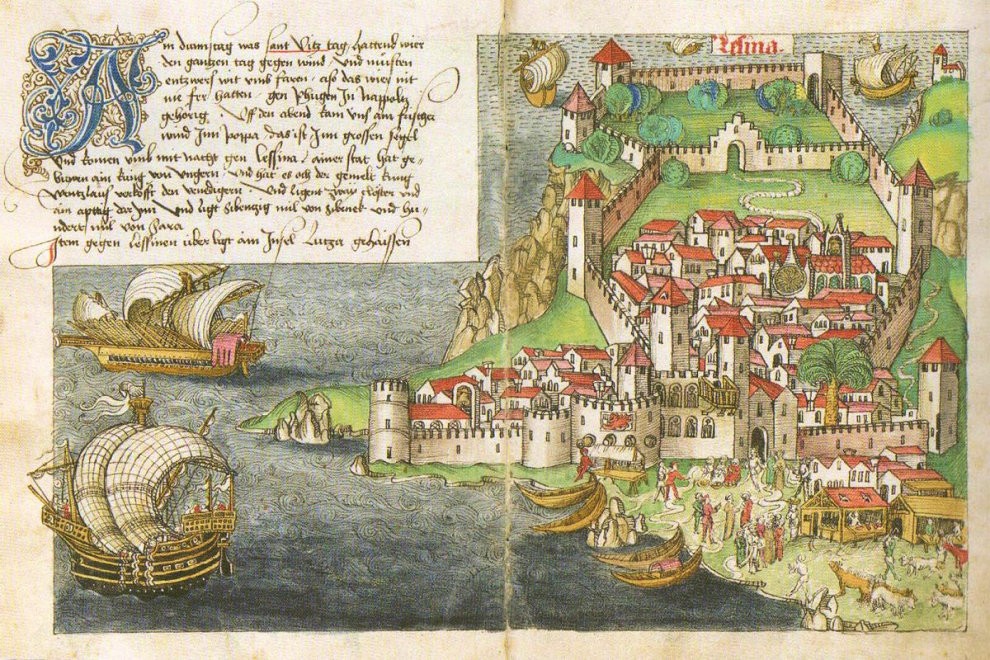 An dunstag was sant Vitz tag hattend wier
den gantzen tag gegen wind . Und müsten
entzwers wit umb faren . also das wier nit
me fer hatten . gen Phugen In Nappols
gehörig . Uff den abent kam uns ain frischer
wind Inn poppa das ist Inn grossen segel
Und komen umb mit nacht gen Lessina / ainer stat hat ge-
buwen ain kung von ungern . und hat es och der gemelt kung
Wentzlaus verkofft den venedigern . Und ligent zway clöster und
ain apptay dar Inn . Und ligt sibenzig mil von Sibinck . und hu-
ndert mil von Saxa
Item gegen Lessinen uber ligt ain Insel Lutza gehaissen
Lesina.